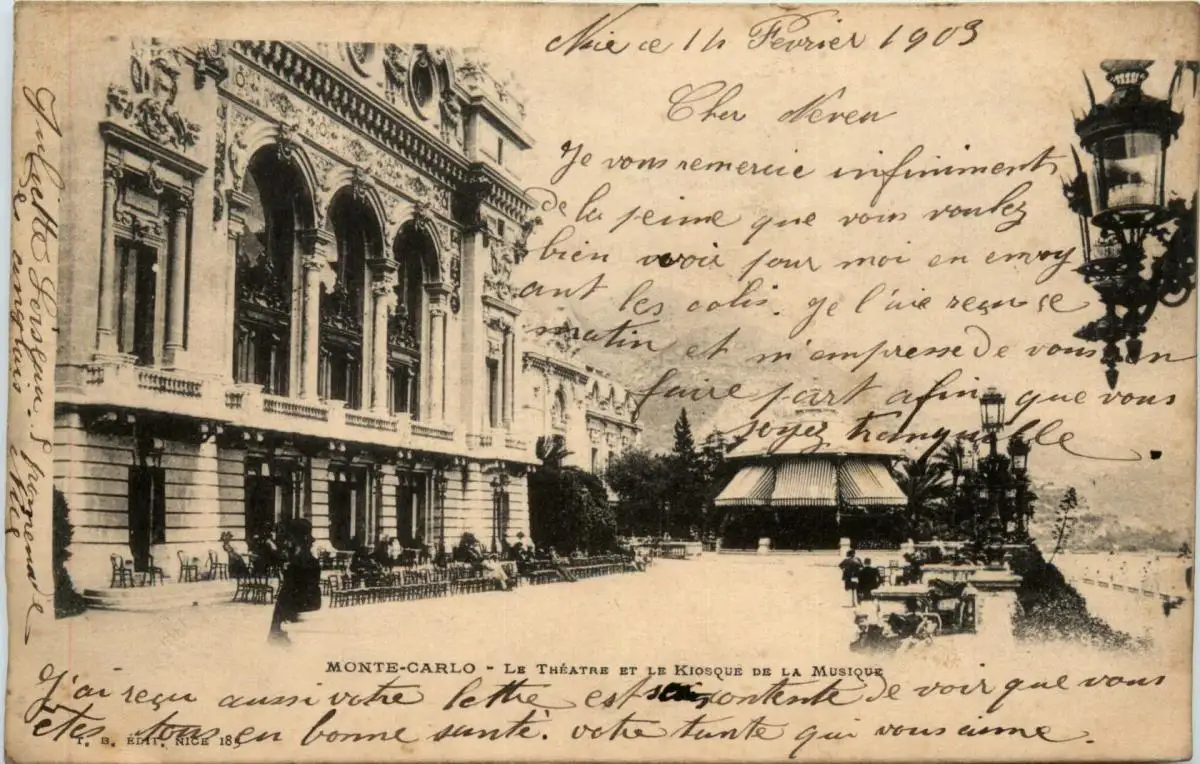 Nice ce 14 Fevrier 1903
Cher Neveu
Je vous remercie infiniment
de la peine que vous voulez
bien avoir pour moi en envoy
ant les colis. je l'aie reçu ce
matin et m'empresse de vous en
faire part afin que vous
soyez tranquille
MONTE-CARLO - LE THÉATRE ET LE KIOSQUE DE LA MUSIQUE
J'ai reçu aussi votre lettre est contente de voir que vous
êtes tous en bonne santé. votre tante qui vous aime.
T. B. ÉDIT. NICE 185
Juliette
Promenade
des anglais Nice